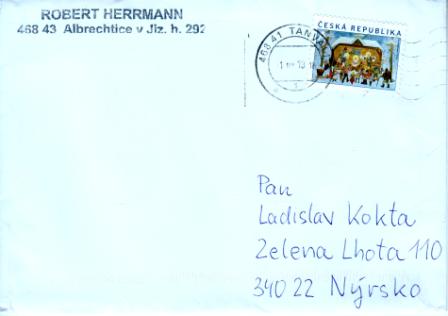 ROBERT HERRMANN
468 43 Albrechtice v Jiz. h. 292
468 41 TANVA
ČESKÁ REPUBLIKA
Pan
Ladislav Kokta
Zelena Lhota 110
340 22 Nýrsko